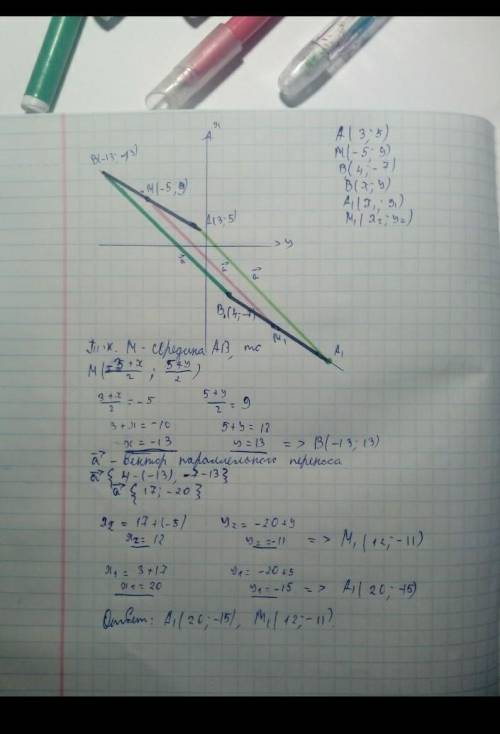 A(3;5)
M(-5;9)
B(4;-7)
B(x;y)
A₁(x₁;y₁)
M₁(x₂;y₂)
B(-13;-13)
M(-5,9)
A(3;5)
y
a
a
a
B₁(4;-7)
M₁
A₁
Т.к. M - середина AB, то
M(3+x/2 ; 5+y/2)
3+x/2 = -5 5+y/2 = 9
3+x=-10 5+y=18
x=-13 y=13 => B(-13;13)
a - вектор параллельного переноса
a{4-(-13); -7-13}
a{17;-20}
x₂=17+(-5) y₂=-20+9
x₂=12 y₂=-11 => M₁(12;-11)
x₁=3+17 y₁=-20+5
x₁=20 y₁=-15 => A₁(20;-15)
Ответ: A₁(20;-15), M₁(12;-11)